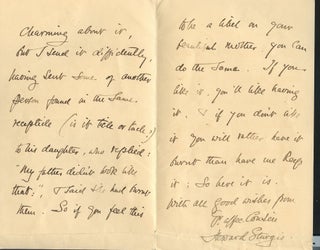 Charming about it,
but I send it diffidently,
having sent some of another
person found in the same
receptacle (is it tile or tacle?)
to his daughter, who replied:
"My father didn't look like
that", & said she had burnt
them. So if you feel this
to be a libel on your
beautiful mother, you can
do the same. If you
like it, you'll like having
it, & if you don't like
it you will rather have it
burnt than have me keep
it; So here it is.
With all good wishes from
Yr. affec. Cousin
Howard Sturgis.